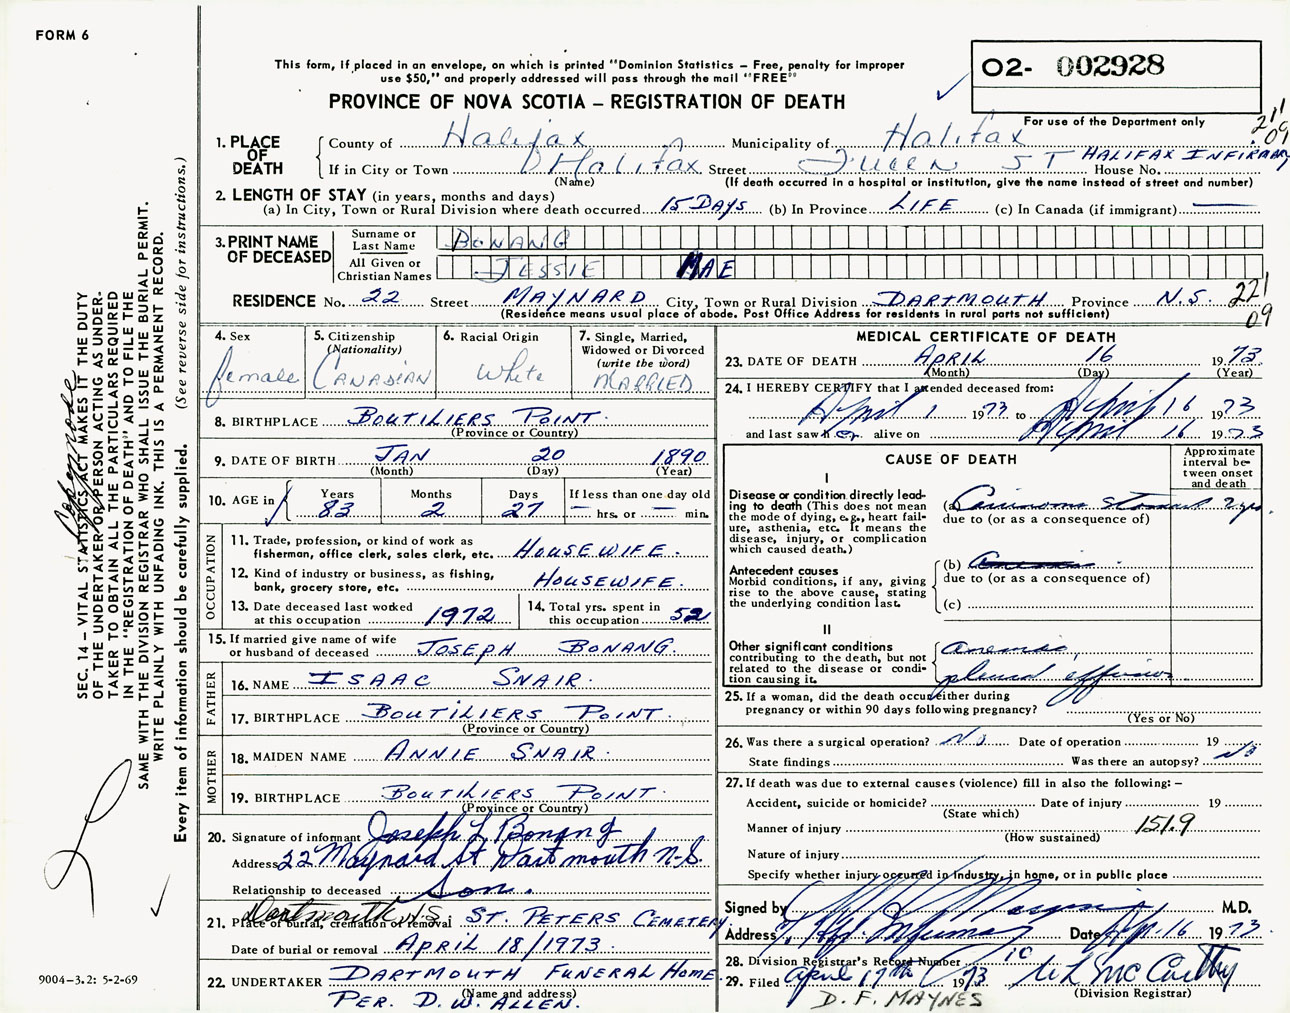 FORM 6
This form, if placed in an envelope, on which is printed "Dominion Statistics – Free, penalty for improper
use $50," and properly addressed will pass through the mail "FREE"
PROVINCE OF NOVA SCOTIA – REGISTRATION OF DEATH
O2- 002928
For use of the Department only
211
09
1. PLACE OF DEATH
County of Halifax Municipality of Halifax
If in City or Town Halifax Street Queen ST House No. HALIFAX INFIRMARY
(Name) (If death occurred in a hospital or institution, give the name instead of street and number)
2. LENGTH OF STAY (in years, months and days)
(a) In City, Town or Rural Division where death occurred 15 DAYS (b) In Province LIFE (c) In Canada (if immigrant) —
3. PRINT NAME OF DECEASED
Surname or Last Name BONANG
All Given or Christian Names JESSIE MAE
RESIDENCE No. 22 Street MAYNARD City, Town or Rural Division DARTMOUTH Province N.S.
221
09
(Residence means usual place of abode. Post Office Address for residents in rural parts not sufficient)
4. Sex
female
5. Citizenship (Nationality)
CANADIAN
6. Racial Origin
White
7. Single, Married, Widowed or Divorced (write the word)
MARRIED
8. BIRTHPLACE BOUTILIERS POINT.
(Province or Country)
9. DATE OF BIRTH JAN 20 1890
(Month) (Day) (Year)
10. AGE in
Years 83
Months 2
Days 27
If less than one day old
— hrs. or — min.
OCCUPATION
11. Trade, profession, or kind of work as
fisherman, office clerk, sales clerk, etc. HOUSEWIFE.
12. Kind of industry or business, as fishing,
bank, grocery store, etc. HOUSEWIFE.
13. Date deceased last worked
at this occupation 1972
14. Total yrs. spent in
this occupation 52
15. If married give name of wife
or husband of deceased JOSEPH BONANG.
FATHER
16. NAME ISAAC SNAIR.
17. BIRTHPLACE BOUTILIERS POINT.
(Province or Country)
MOTHER
18. MAIDEN NAME ANNIE SNAIR.
19. BIRTHPLACE BOUTILIERS POINT.
(Province or Country)
20. Signature of informant Joseph L Bonang
Address 22 Maynard St Dartmouth N.S.
Relationship to deceased Son.
Dartmouth N.S.
21. Place of burial, cremation or removal ST. PETERS CEMETERY.
Date of burial or removal APRIL 18/1973.
22. UNDERTAKER DARTMOUTH FUNERAL HOME
(Name and address)
PER. D. W. ALLEN.
MEDICAL CERTIFICATE OF DEATH
23. DATE OF DEATH APRIL 16 1973.
(Month) (Day) (Year)
24. I HEREBY CERTIFY that I attended deceased from:
April 1 1973 to April 16 1973
and last saw her alive on April 16 1973
CAUSE OF DEATH
Approximate interval between onset and death
I
Disease or condition directly leading to death (This does not mean
the mode of dying, e.g., heart failure, asthenia, etc. It means the
disease, injury, or complication
which caused death.)
(a) Carcinoma Stomach 2 yrs.
due to (or as a consequence of)
Antecedent causes
Morbid conditions, if any, giving
rise to the above cause, stating
the underlying condition last.
(b)
due to (or as a consequence of)
(c)
II
Other significant conditions
contributing to the death, but not
related to the disease or condition causing it.
anemia,
pleural effusion
25. If a woman, did the death occur either during
pregnancy or within 90 days following pregnancy?
(Yes or No)
26. Was there a surgical operation? No Date of operation 19
State findings Was there an autopsy? No
27. If death was due to external causes (violence) fill in also the following: –
Accident, suicide or homicide? Date of injury 19
(State which)
Manner of injury 151.9
(How sustained)
Nature of injury
Specify whether injury occurred in industry, in home, or in public place
Signed by M.D.
Address Hfx Infirmary Date Ap. 16 1973.
28. Division Registrar's Record Number 10
29. Filed April 17th 1973 W L McCarthy
(Division Registrar)
D. F. MAYNES
SEC. 14 – VITAL STATISTICS ACT MAKES IT THE DUTY
OF THE UNDERTAKER OR PERSON ACTING AS UNDER-
TAKER TO OBTAIN ALL THE PARTICULARS REQUIRED
IN THE "REGISTRATION OF DEATH" AND TO FILE THE
SAME WITH THE DIVISION REGISTRAR WHO SHALL ISSUE THE BURIAL PERMIT.
WRITE PLAINLY WITH UNFADING INK. THIS IS A PERMANENT RECORD.
Every item of information should be carefully supplied. (See reverse side for instructions.)
9004–3.2: 5-2-69